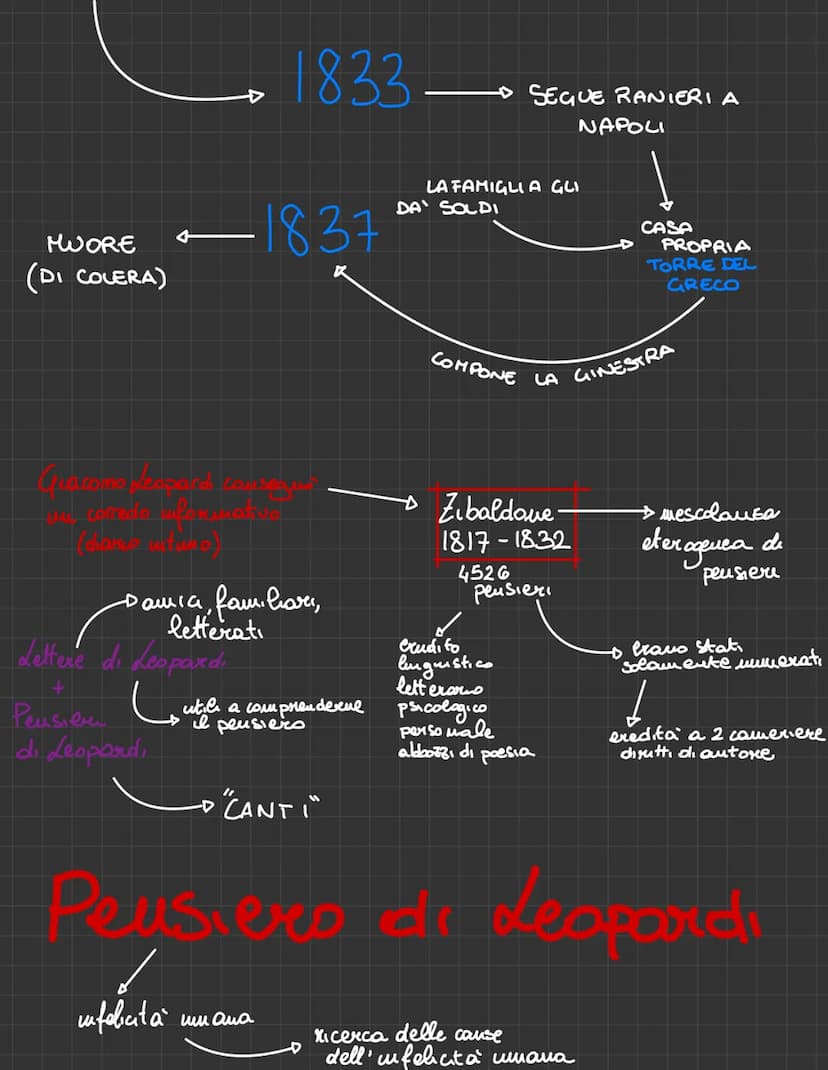 1833
SEGUE RANIERI A
NAPOLI
LA FAMIGLIA GLI
DA' SOLDI
CASA
PROPRIA
TORRE DEL
GRECO
1837
MUORE
(DI COLERA)
COMPONE LA GINESTRA
Giacomo Leopardi conseguì
un corredo informativo
(diario intimo)
Zibaldone
1817-1832
4526
pensieri
mescolanza
eterogenea di
pensieri
erudito
linguistico
letterario
psicologico
personale
abbozzi di poesia
erano stati
solamente numerati
eredità a 2 cameriere
diritti di autore
amici, familiari,
letterati
Lettere di Leopardi
+
Pensieri
di Leopardi
utili a comprenderne
il pensiero
"CANTI"
Pensiero di Leopardi
infelicità umana
ricerca delle cause
dell'infelicità umana